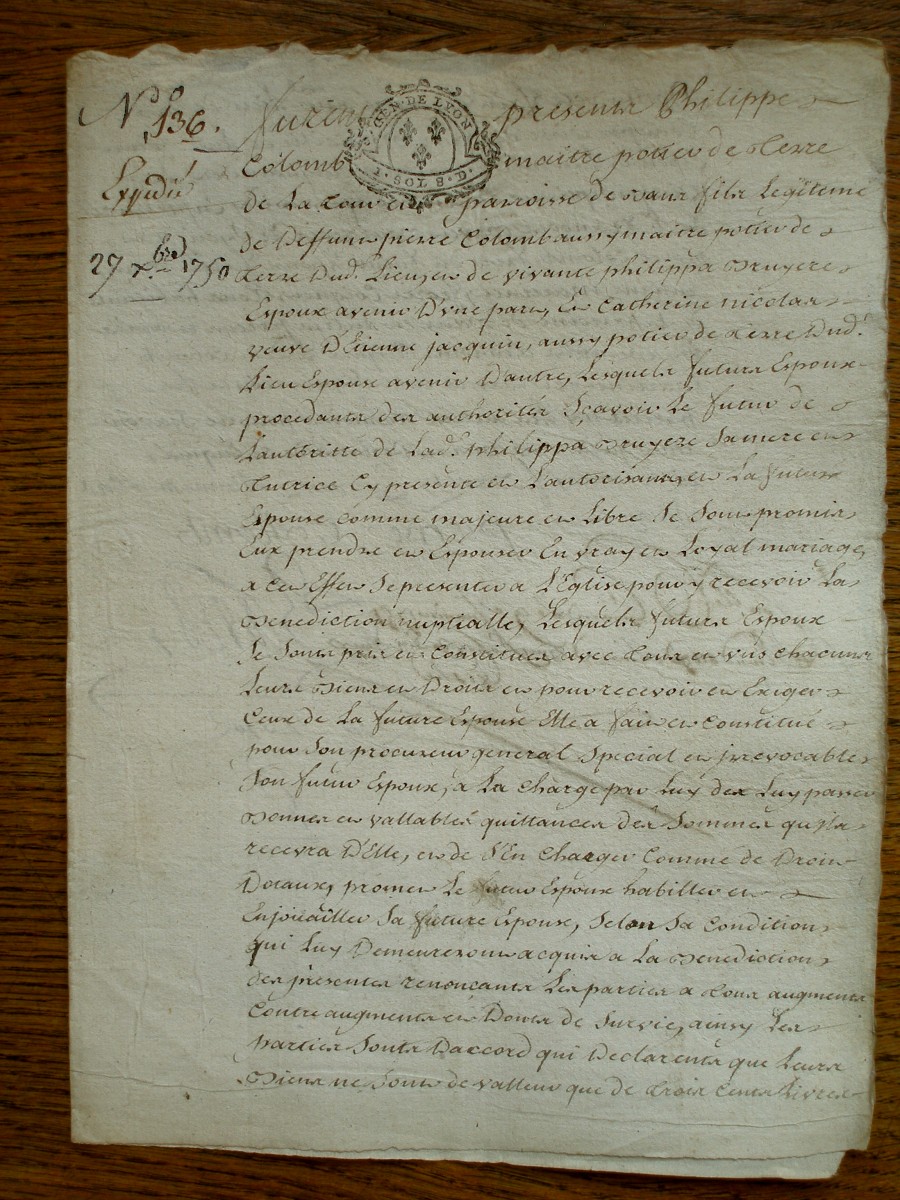 No 136.
Expedié
27 xbre 1750
GEN. DE LYON
1. SOL 8. D.
Furent presents Philippe
Colomb maitre potier de Terre
de La Tour en parroisse de Vaux fils Legiteme
de Deffunt pierre Colomb aussy maitre potier de
Terre dud. Lieu, et de vivante philippa Bruyere
Epoux avenir D'vne part, Et Catherine nicolas
veuve D'Etienne jacquin, aussy potier de Terre Dud.
Lieu Espouse avenir D'autre, Lesquels futurs Espoux
procedants des authorités Sçavoir Le futur de
L'autoritte de Lad. philippa Bruyere Sa mere et
Tutrice Cy presente et L'autorisant, et La future
Espouse comme majeure et Libre Se Sont promis
Eux prendre et Espouser En vray et Loyal mariage,
a cet Effet Se presenter a L'Eglise pour y recevoir La
Benediction nuptialle, Lesquels futurs Epoux
Se Sonts pris et Constitués avec Tous et vns chacuns
Leurs Biens et Droits et pour recevoir et Exiger
Ceux de La future Epouse Elle a fait et Constitué
pour Son procureur general Special et irrevocable
Son futur Espoux, a La Charge par Luy des Luy passer
Bonnes et vallables quittances des Sommes qu'il
recevra D'Elle, et de S'En Charger Comme de Droits
Dotaux, promet Le futur Espoux habiller et
Enjouailler Sa future Epouse, Selon Sa Condition
qui Luy Demeureront acquis a La Benediction
des presentes renonçants Les parties a Tous augments
Contre augments et Donts de Survie, ainsy Les
parties Sonts D'accord qui Declarents que Leurs
Biens ne Sonts de valleur que de Trois Cents Livres